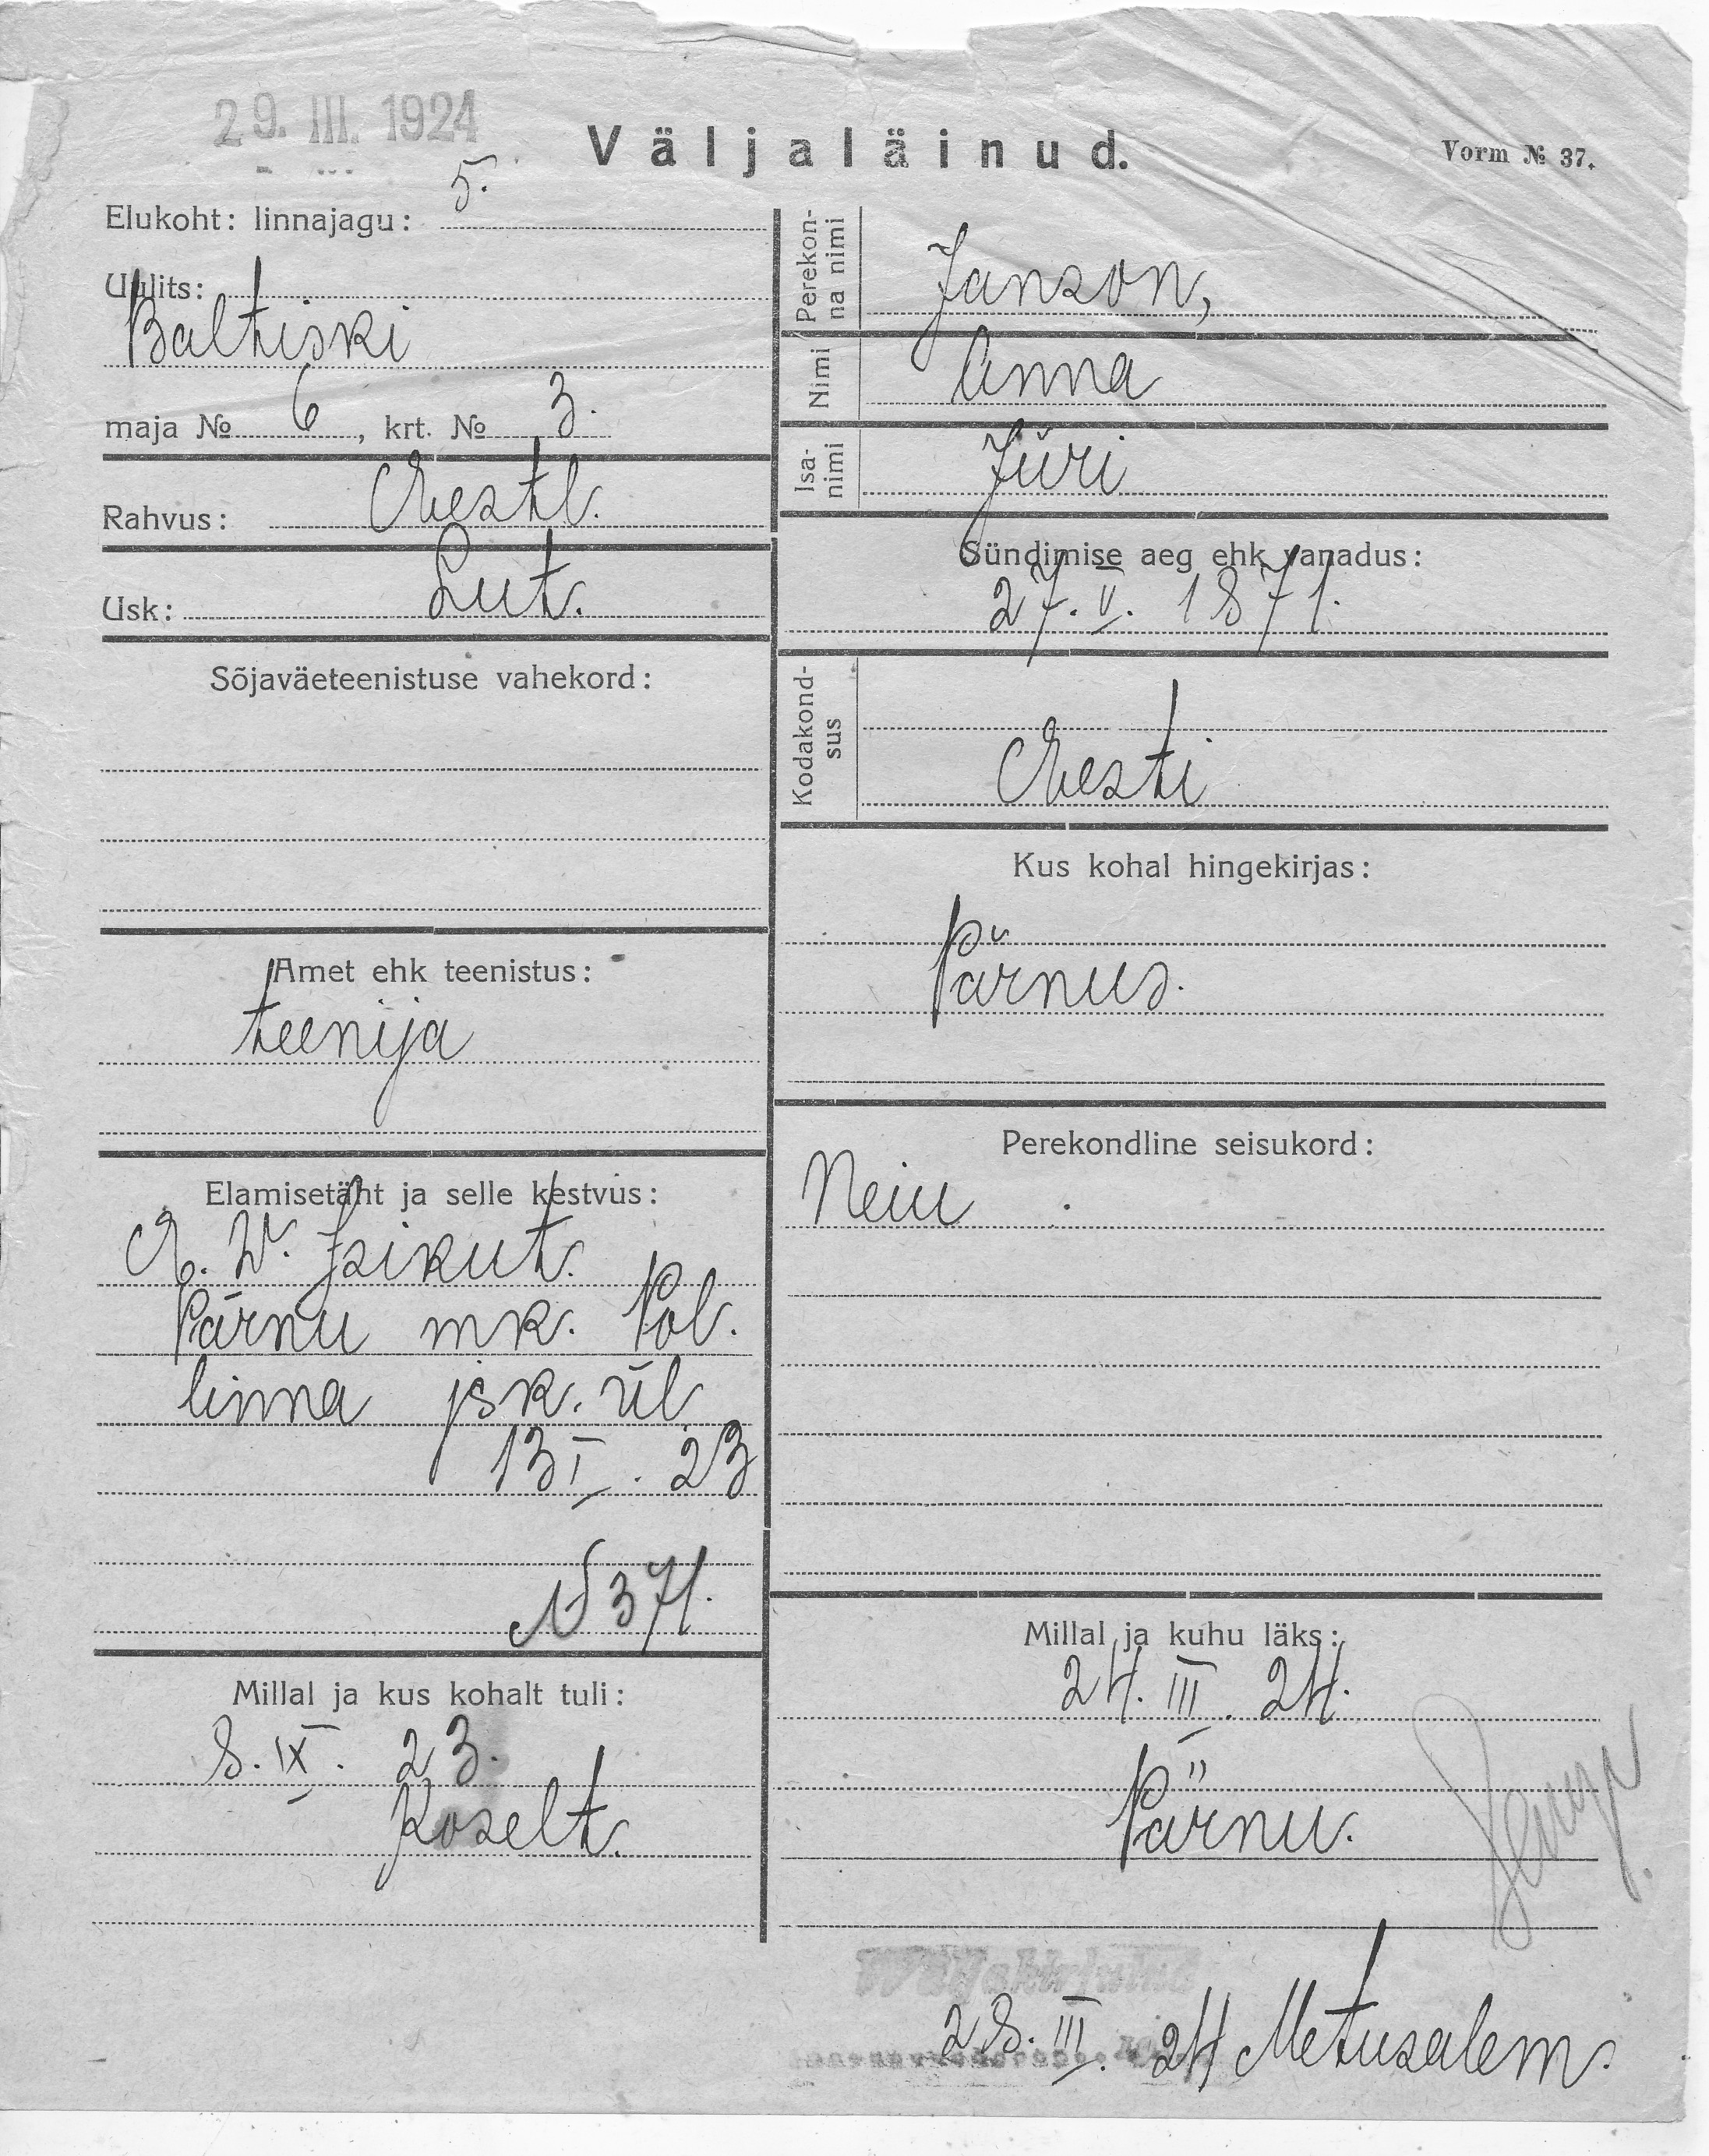 29. III. 1924
Väljaläinud.
Vorm № 37.
Elukoht: linnajagu: 5.
Uulits:
Baltiski
maja № 6, krt. № 3.
Rahvus: Eestl.
Usk: Lut.
Sõjaväeteenistuse vahekord:
Amet ehk teenistus:
teenija
Elamisetäht ja selle kestvus:
E. W. Isikut.
Pärnu mk. Pol.
linna jsk. ül
13 I. 23
N 371.
Millal ja kus kohalt tuli:
8. IX. 23.
Koselt.
Perekon-
na nimi
Janson,
Nimi
Anna
Isa-
nimi
Jüri
Sündimise aeg ehk vanadus:
27. V. 1871.
Kodakond-
sus
Eesti
Kus kohal hingekirjas:
Pärnus.
Perekondline seisukord:
Neiu
Millal ja kuhu läks:
24. III. 24.
Pärnu.
28. III. 24 Metusalem.